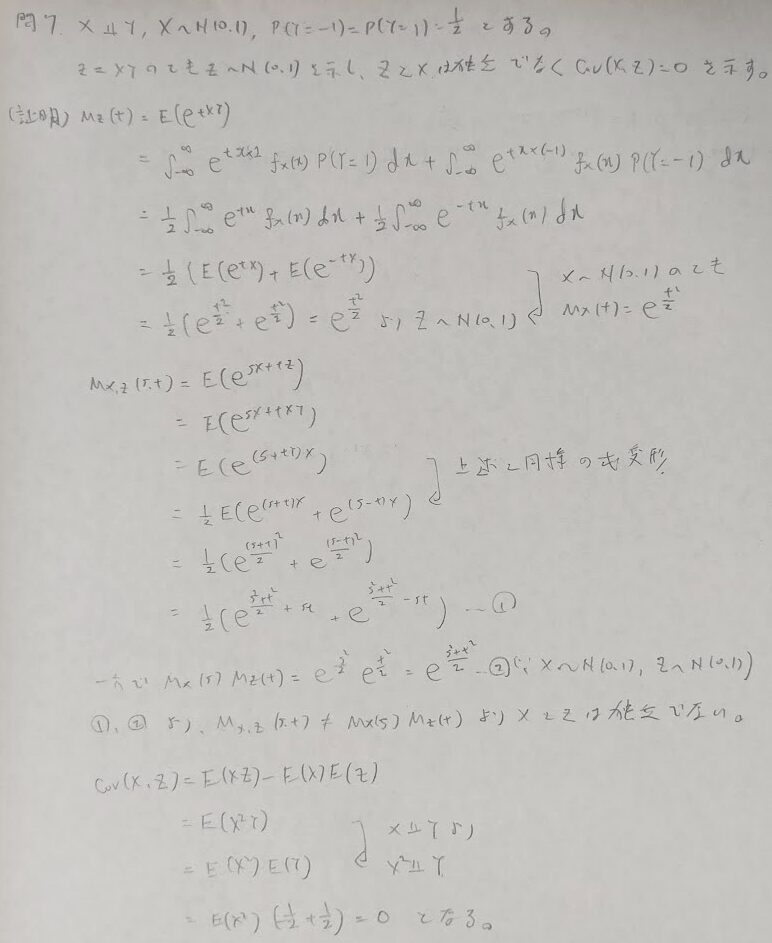 問7. X⫫Y, X~N(0,1), P(Y=-1)=P(Y=1)=1/2 とする。
Z=XYのときZ~N(0,1)を示し、ZとXは独立でなくCov(X,Z)=0を示す。
(証明) Mz(t) = E(e^{tXY})
= ∫_{-∞}^{∞} e^{tx×1} fx(x) P(Y=1) dx + ∫_{-∞}^{∞} e^{tx×(-1)} fx(x) P(Y=-1) dx
= 1/2 ∫_{-∞}^{∞} e^{tx} fx(x) dx + 1/2 ∫_{-∞}^{∞} e^{-tx} fx(x) dx
= 1/2 (E(e^{tX}) + E(e^{-tX})) X~N(0,1)のとき
= 1/2 (e^{t²/2} + e^{t²/2}) = e^{t²/2} より Z~N(0,1) Mx(t) = e^{t²/2}
Mx,z(s,t) = E(e^{sX+tZ})
= E(e^{sX+tXY})
= E(e^{(s+tY)X}) 上述と同様の式変形
= 1/2 E(e^{(s+t)X} + e^{(s-t)X})
= 1/2 (e^{(s+t)²/2} + e^{(s-t)²/2})
= 1/2 (e^{(s²+t²)/2 + st} + e^{(s²+t²)/2 - st}) …①
一方で Mx(s) Mz(t) = e^{s²/2} e^{t²/2} = e^{(s²+t²)/2} …② (∵ X~N(0,1), Z~N(0,1))
①, ② より、Mx,z(s,t) ≠ Mx(s) Mz(t) より XとZは独立でない。
Cov(X,Z) = E(XZ) - E(X)E(Z)
= E(X²Y) X⫫Yより
= E(X²) E(Y) X²⫫Y
= E(X²) (-1/2 + 1/2) = 0 となる。